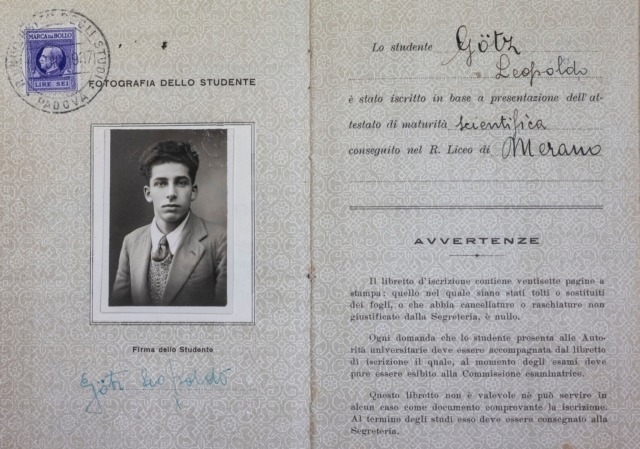 R. UNIVERSITÀ DEGLI STUDI
PADOVA
MARCA DA BOLLO
LIRE SEI
FOTOGRAFIA DELLO STUDENTE
Firma dello Studente
Götz Leopoldo
Lo studente Götz
Leopoldo
è stato iscritto in base a presentazione dell'at-
testato di maturità scientifica
conseguito nel R. Liceo di Merano
AVVERTENZE
Il libretto d'iscrizione contiene ventisette pagine a
stampa; quello nel quale siano stati tolti o sostituiti
dei fogli, o che abbia cancellature o raschiature non
giustificate dalla Segreteria, è nullo.
Ogni domanda che lo studente presenta alle Auto-
rità universitarie deve essere accompagnata dal libretto
di iscrizione il quale, al momento degli esami deve
pure essere esibito alla Commissione esaminatrice.
Questo libretto non è valevole nè può servire in
alcun caso come documento comprovante la iscrizione.
Al termine degli studi esso deve essere consegnato alla
Segreteria.